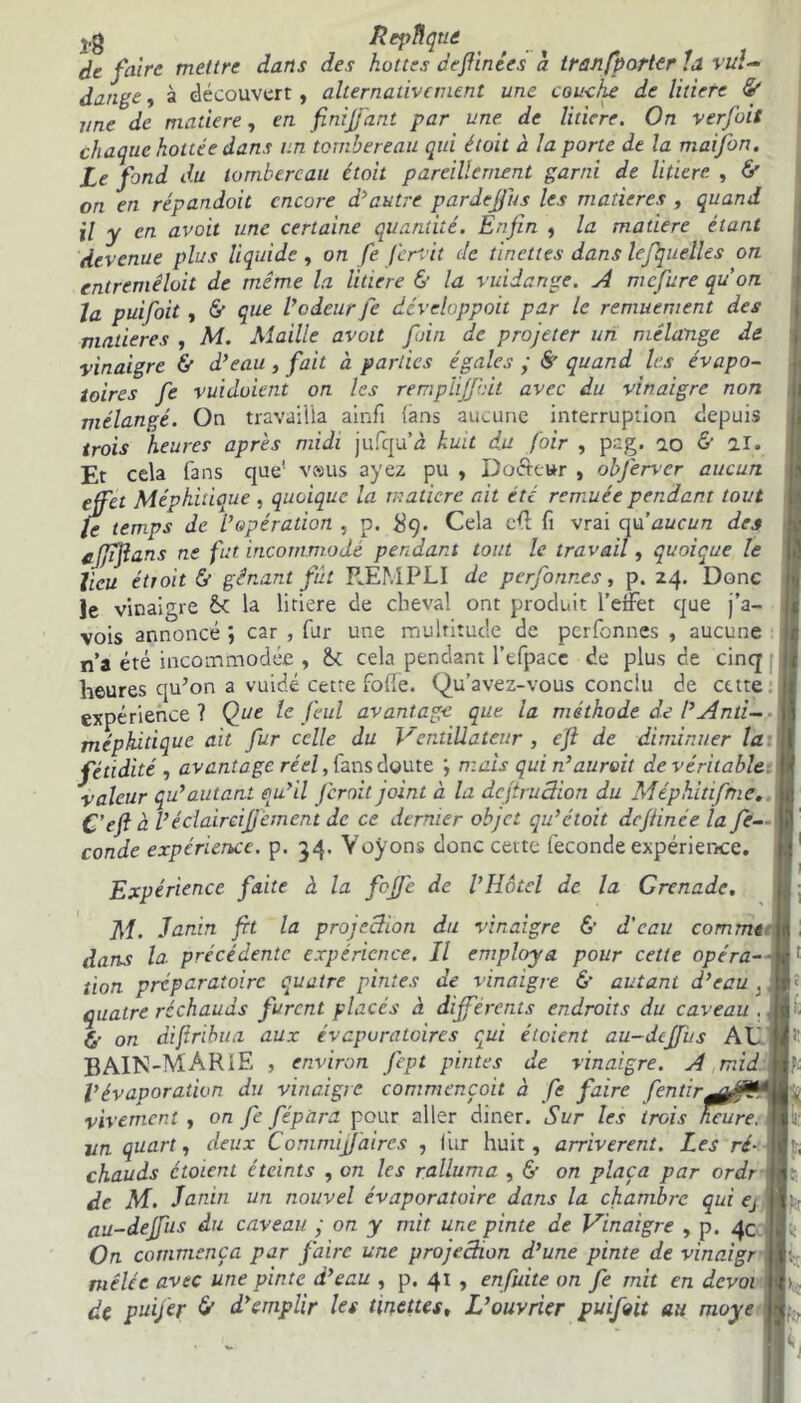 18 Replique
de faire mettre dans des hottes deſtinées à tranſporter la vui-
dange, à découvert, alternativement une couche de litiere &
une de matiere, en finiſſant par une de litiere. On verſoit
chaque hottée dans un tombereau qui étoit à la porte de la maiſon.
Le fond du tombereau étoit pareillement garni de litiere, &
on en répandoit encore d'autre pardeſſus les matieres, quand
il y en avoit une certaine quantité. Enfin, la matiere étant
devenue plus liquide, on ſe ſervit de tinettes dans leſquelles on
entremêloit de même la litiere & la vuidange. A meſure qu'on
la puiſoit, & que l'odeur ſe développoit par le remuement des
matieres, M. Maille avoit ſoin de projeter un mélange de
vinaigre & d'eau, fait à parties égales; & quand les évapo-
toires ſe vuidoient on les rempliſſoit avec du vinaigre non
mélangé. On travailla ainſi ſans aucune interruption depuis
trois heures après midi juſqu'à huit du ſoir, pag. 20 & 21.
Et cela ſans que vous ayez pu, Docteur, obſerver aucun
effet Méphitique, quoique la matiere ait été remuée pendant tout
le temps de l'opération, p. 89. Cela eſt ſi vrai qu'aucun des
aſſiſtans ne fut incommodé pendant tout le travail, quoique le
lieu étroit & gênant fût REMPLI de perſonnes, p. 24. Donc
le vinaigre & la litiere de cheval ont produit l'effet que j'a-
vois annoncé; car, ſur une multitude de perſonnes, aucune
n'a été incommodée, & cela pendant l'eſpace de plus de cinq
heures qu'on a vuidé cette foſſe. Qu'avez-vous conclu de cette
expérience? Que le ſeul avantage que la méthode de l'Anti-
méphitique ait ſur celle du Ventillateur, eſt de diminuer la
fétidité, avantage réel, ſans doute; mais qui n'auroit de véritable
valeur qu'autant qu'il ſeroit joint à la deſtruction du Méphitiſme.
C'eſt à l'éclairciſſement de ce dernier objet qu'étoit deſtinée la ſe-
conde expérience. p. 34. Voyons donc cette ſeconde expérience.
Expérience faite à la foſſe de l'Hôtel de la Grenade.
M. Janin fit la projection du vinaigre & d'eau comme
dans la précédente expérience. Il employa pour cette opéra-
tion préparatoire quatre pintes de vinaigre & autant d'eau,
quatre réchauds furent placés à différents endroits du caveau,
& on diſtribua aux évaporatoires qui étoient au-deſſus AU
BAIN-MARIE, environ ſept pintes de vinaigre. A mid
l'évaporation du vinaigre commençoit à ſe faire ſentir
vivement, on ſe ſépara pour aller diner. Sur les trois heure.
un quart, deux Commiſſaires, ſur huit, arriverent. Les ré-
chauds étoient éteints, on les ralluma, & on plaça par ordr
de M. Janin un nouvel évaporatoire dans la chambre qui eſ
au-deſſus du caveau; on y mit une pinte de Vinaigre, p. 40
On commença par faire une projection d'une pinte de vinaigr
mêlée avec une pinte d'eau, p. 41, enſuite on ſe mit en devoi
de puiſer & d'emplir les tinettes, L'ouvrier puiſoit au moye